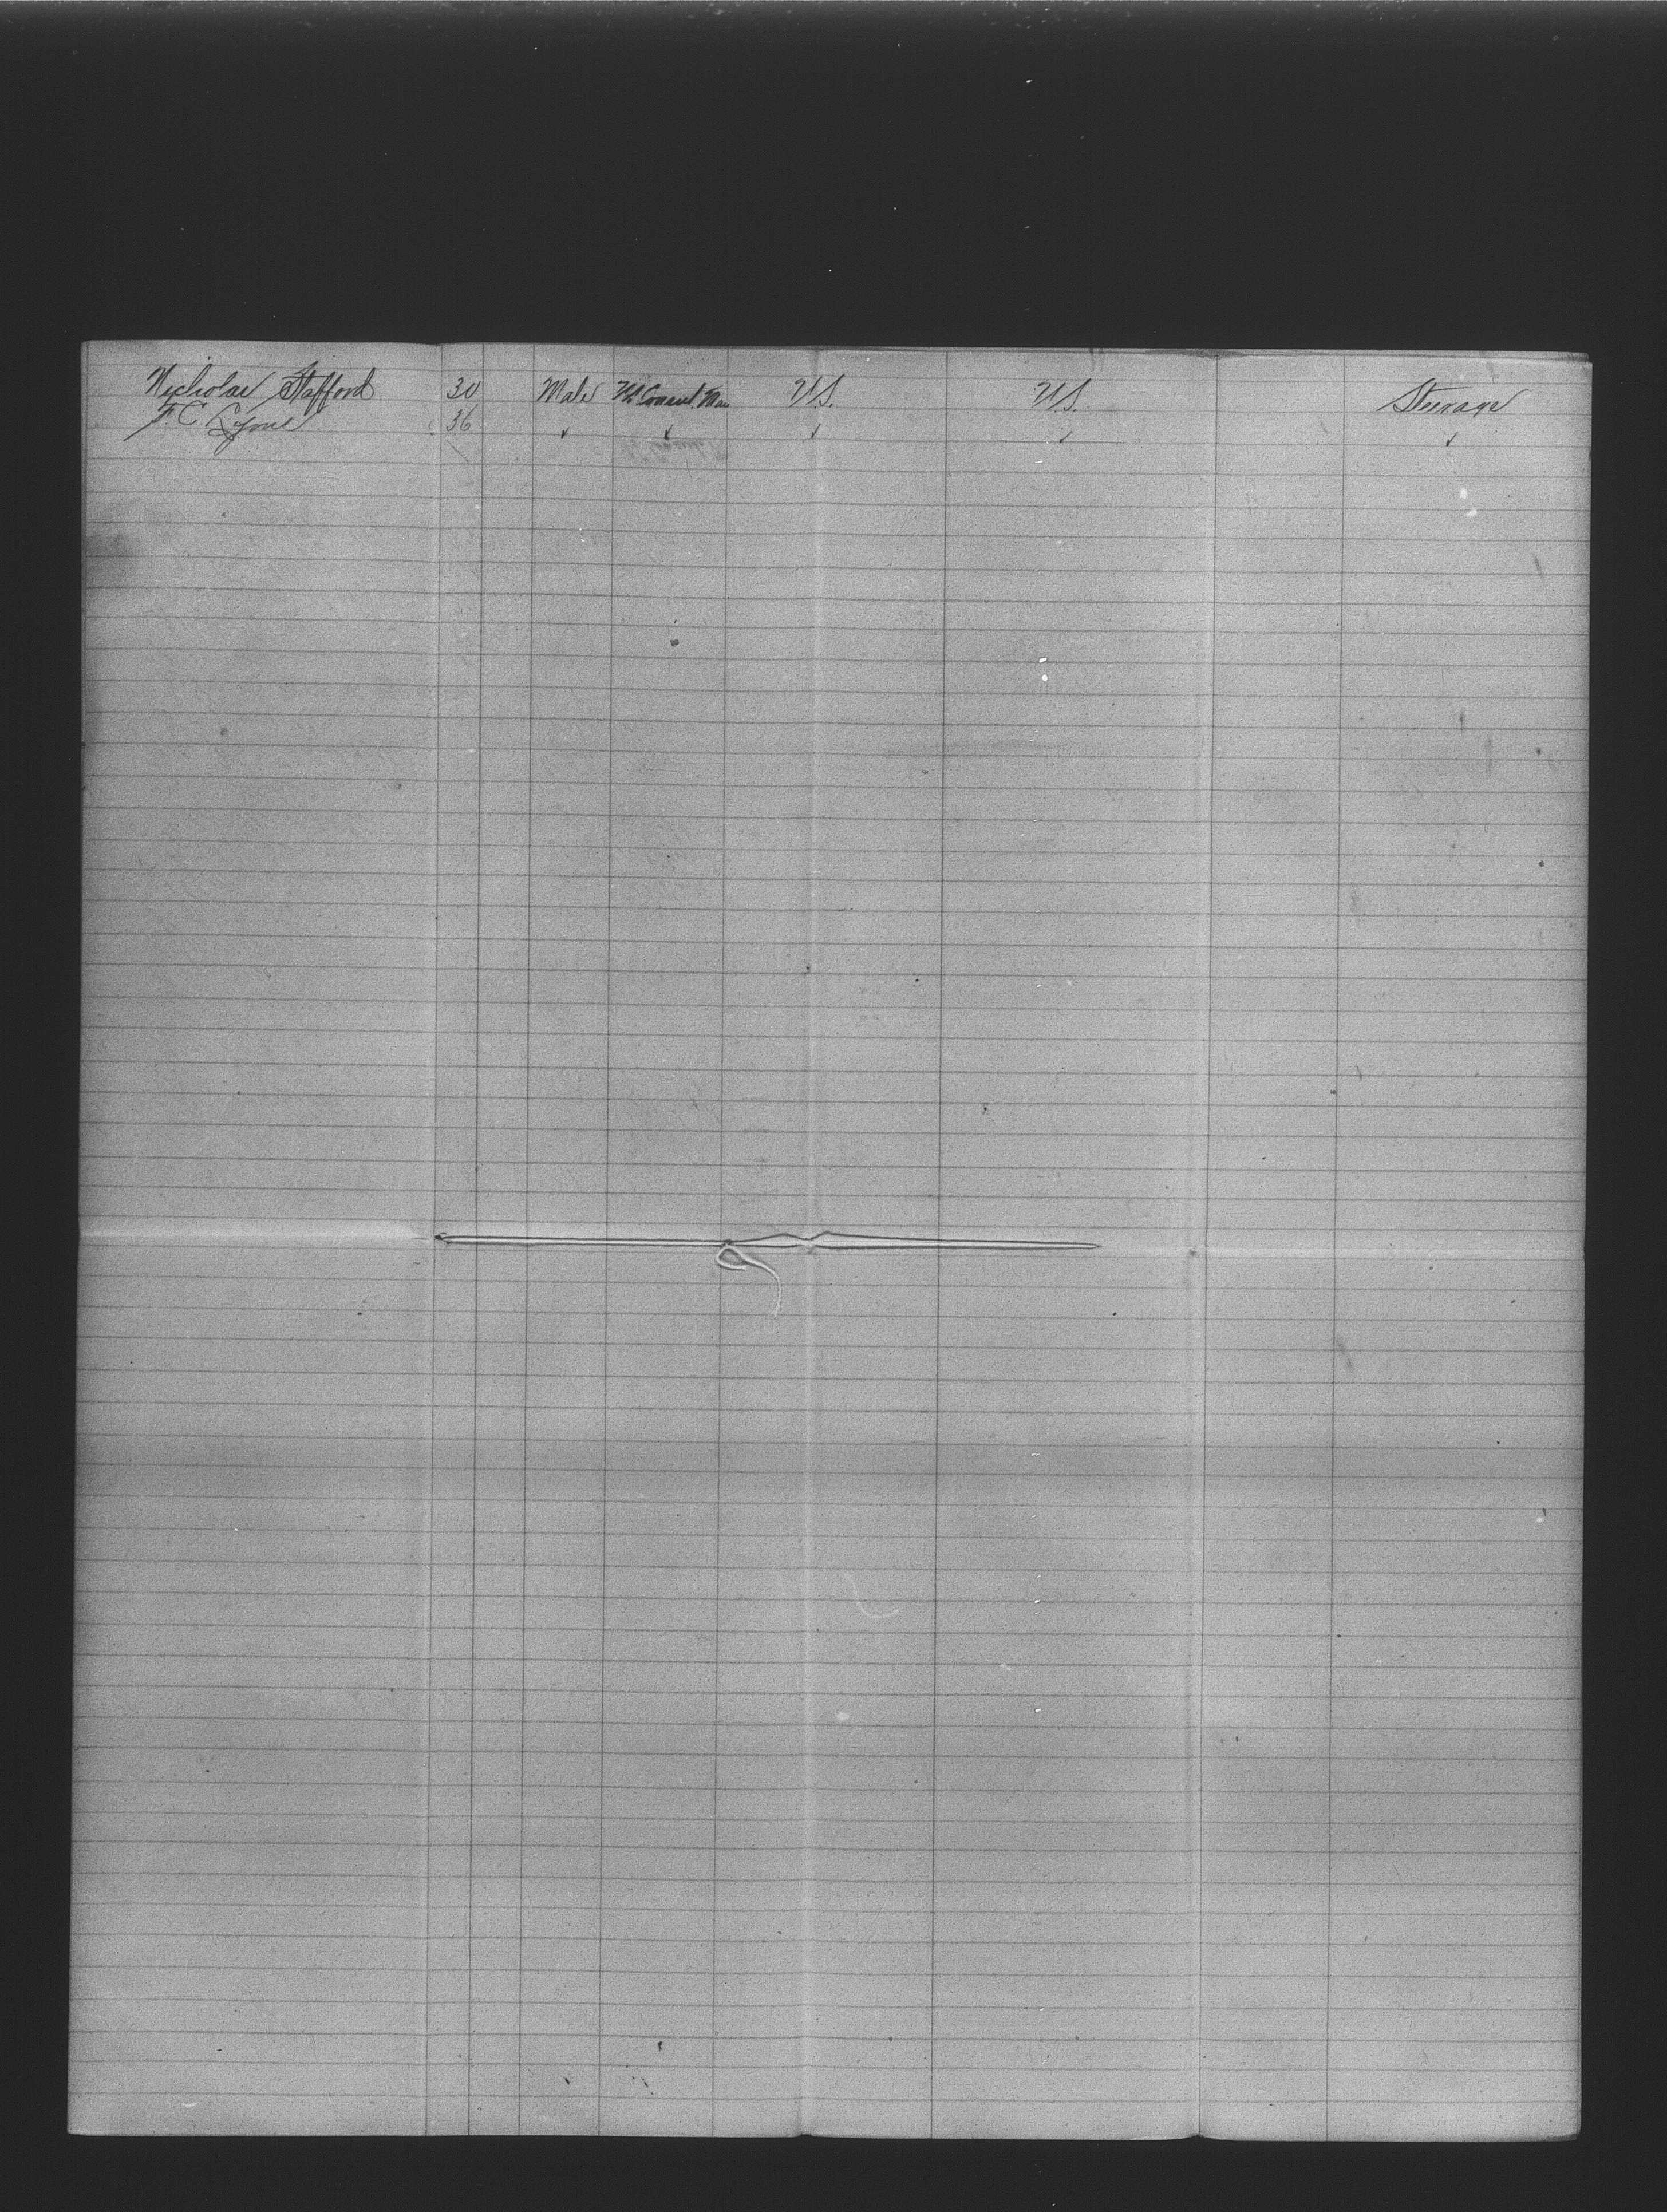 Nicholas Stafford 30 Male US Consul Man U.S. U.S. Steerage
F. C. Lyons 36 ✓ ✓ ✓ ✓ ✓